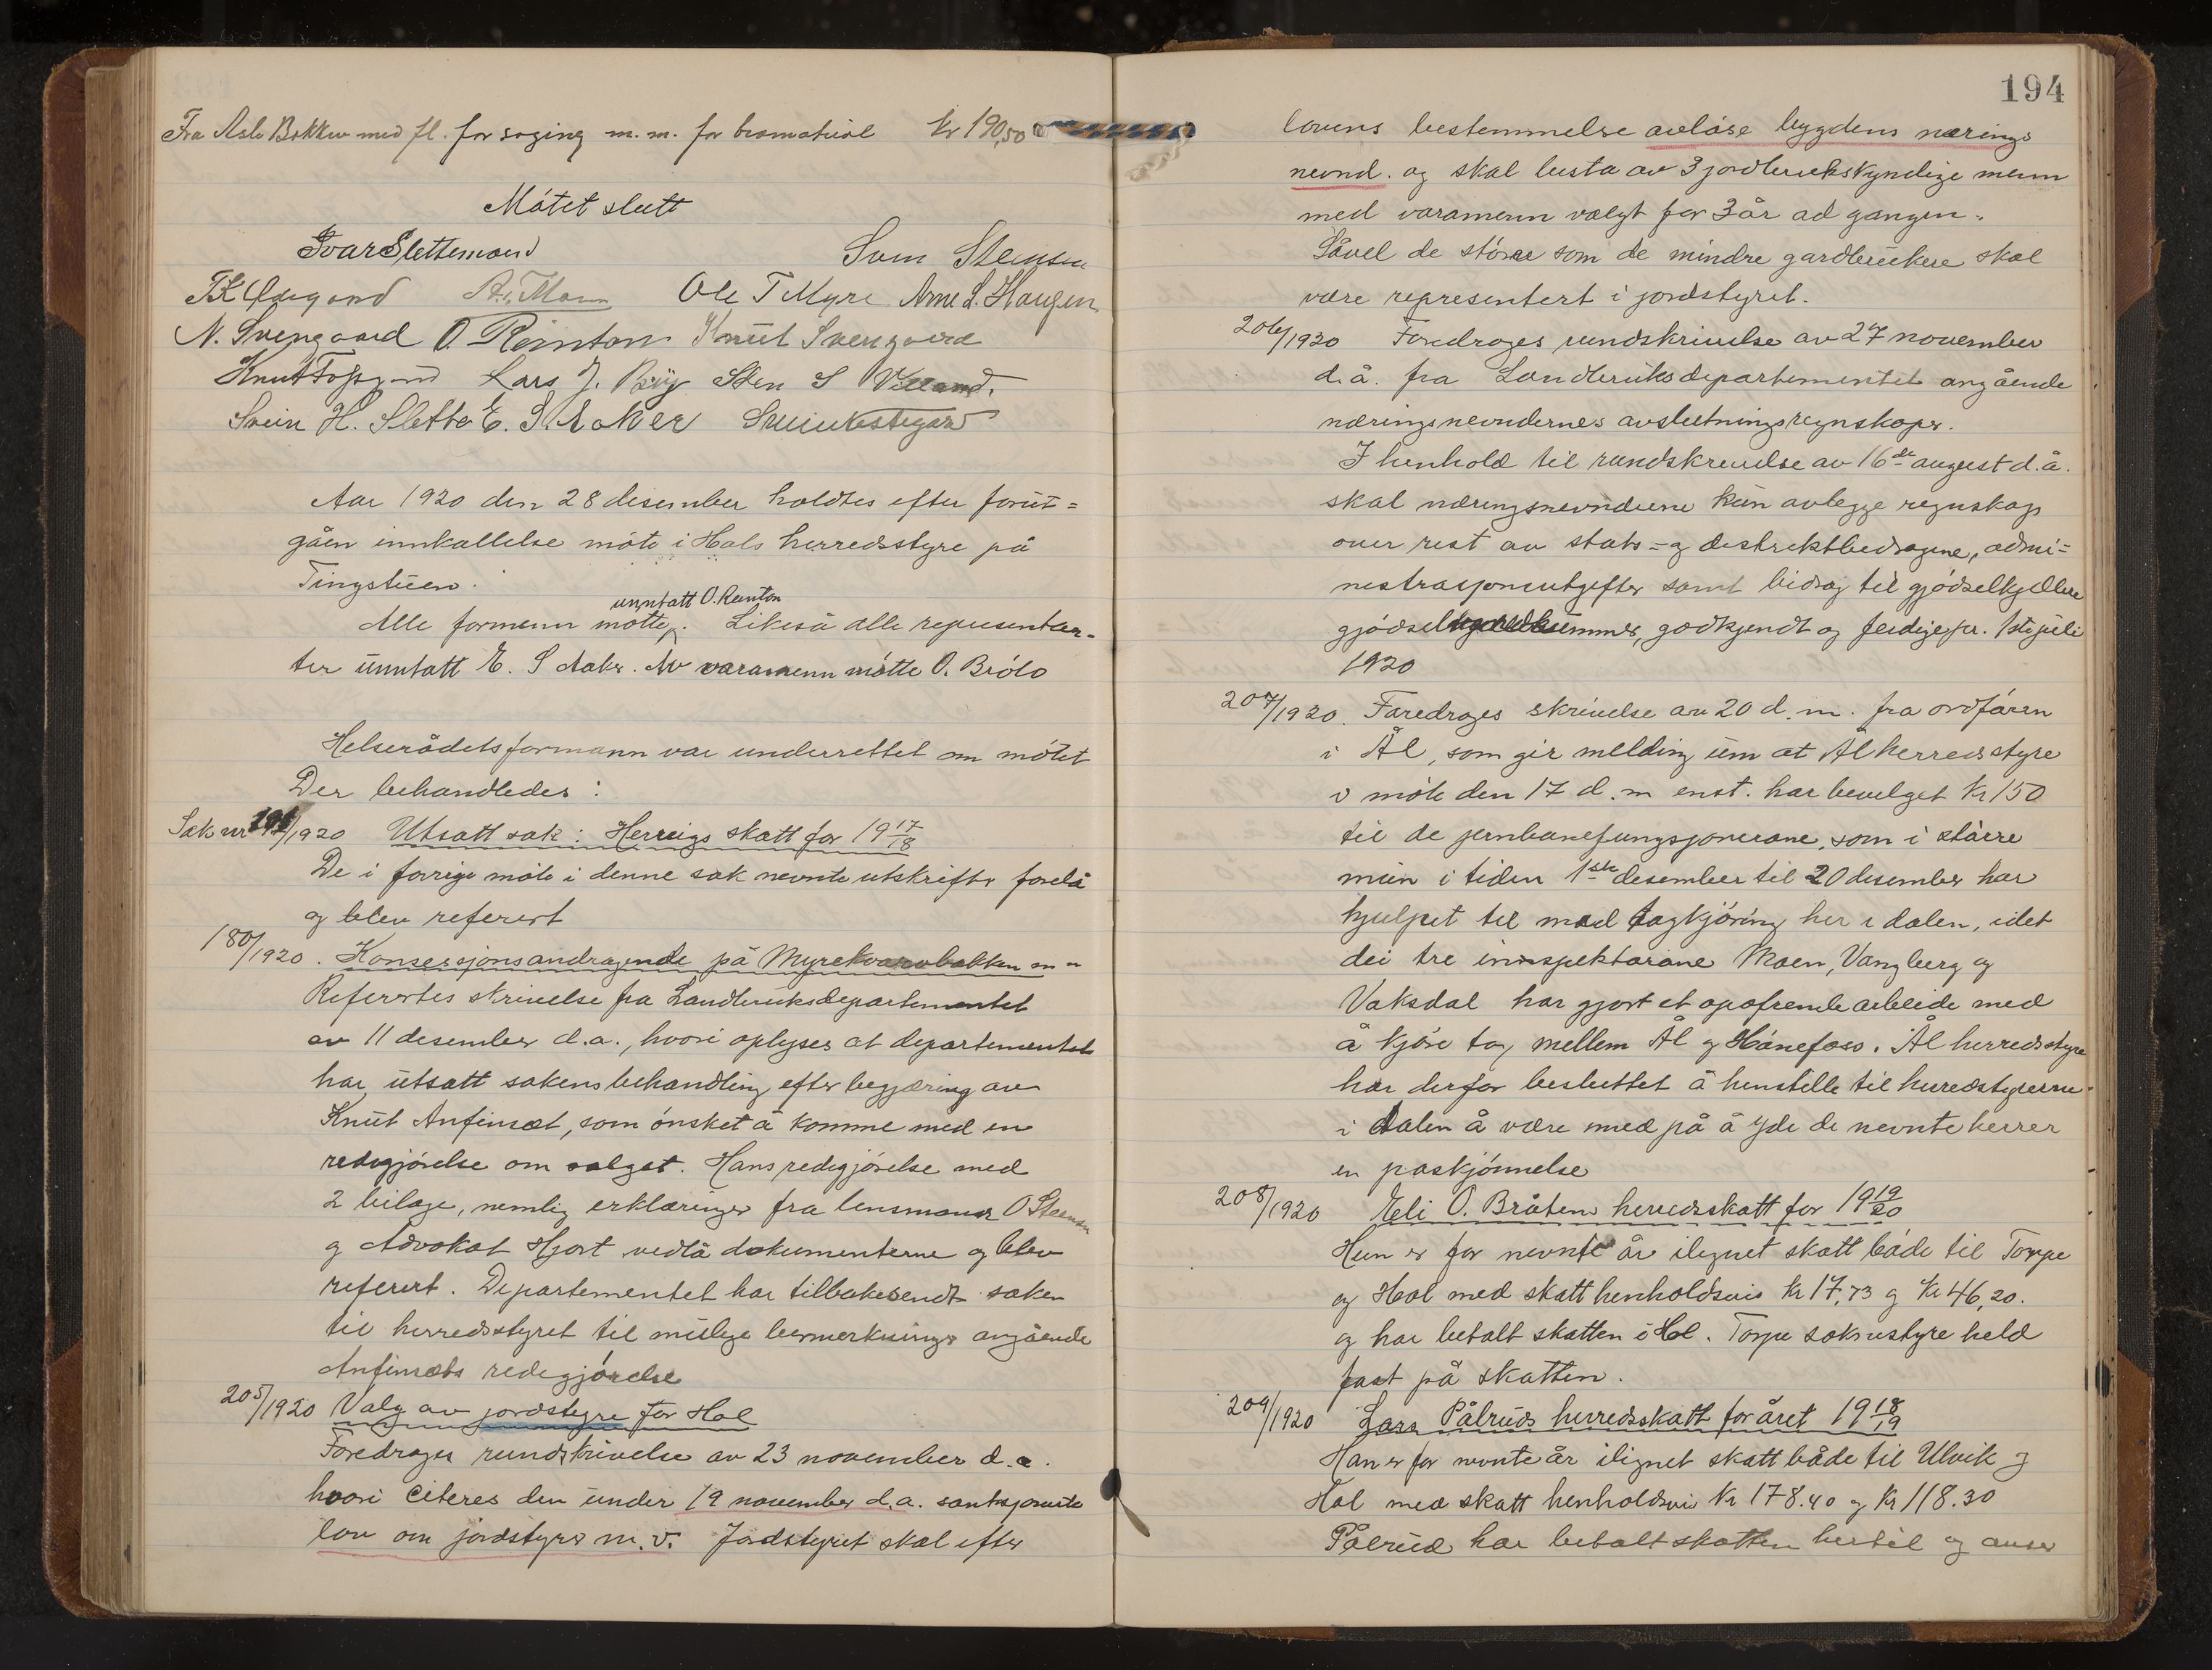 Fra Asle Bakken med fl. for saging m.m. for bromatrial kr 190,50
Møtet slutt
Ivar Slettemoend Sven Stensen
TK Ødegaard Ole T Myre Arne L. Haugen
N. Svengaard O. Reinton Knut Svengaard
Knut Tofsgard Lars J. Sten S Villand.
Svein H. Sletto E. S Aaker
Aar 1920 den 28 desember holdtes efter forut=
gåen innkallelse møte i Hols herredsstyre på
Tingstuen.
unntatt O. Reinton
Alle formenn møtte, Likeså alle representan-
ter unntatt E. S Aaker. Av varamenn møtte O. Bråto
Helserådetsformann var underrettet om møtet
Der behandledes:
Sak nr /1920 Utsatt sak: Herreigs skatt for 19 17/18
De i forrige møte i denne sak nevnte utskrifter forelå
og blev referert
180/1920. Konsersjonsandragende på Myrekvarvbakken m m
Refertes skrivelse fra Landbruksdepartementet
av 11 desember d.a., hvori oplyses at departementet
har utsatt sakens behandling efter begjæring av
Knut Anfinset, som ønsket å komme med en
redegjørelse om salget. Hans redegjørelse med
2 bilage, nemlig erklæringer fra lensmann O Stensen
og Advokat Hjort vedlå dokumenterne og blev
referert. Departementet har tilbakesendt saken
til herredsstyret til mulige bemerkninger angående
Anfinsets redegjørelse
205/1920 Valg av jordstyre for Hol
Foredroges rundskrivelse av 23 november d.a.
hvori citeres den under 19 november d.a. sanksjonerte
lov om jordstyre m.v. Jordstyret skal efter
194
lovens bestemmelse avløse bygdens nærings
nevnd. og skal besta av 3 jordbrukskyndige menn
med varamenn valgt for 3 år ad gangen.
Såvel de større som de mindre gardbrukere skal
være representert i jordstyret.
206/1920 Foredroges rundskrivelse av 27 november
d.å. fra Landbruksdepartementet angående
næringsnevndernes avslutningsregnskaper.
I henhold til rundskrivelse av 16de august d.å.
skal næringsnevnderne kun avlegge regnskap
over rest av stats= og distriktbidragene, admi=
nistrasjonsutgifter samt bidrag til gjødselkjellere
gjødsel godkjendt og ferdige pr. 1ste juli
1920
207/1920. Foredroges skrivelse av 20 d.m. fra ordføren
i Ål, som gir melding um at Ål herredsstyre
i møte den 17 d.m enst. har bevilget kr 150
til de jernbanefungsjonerane, som i større
mun i tiden 1ste desember til 20 desember har
hjulpet til med togkjøring her i dalen, idet
dei tre innspektørane Moen, Vangberg og
Vaksdal har gjort et opofrende arbeide med
å kjøre tog mellem Ål og Hønefoss. Ål herredsstyre
har derfor besluttet å henstelle til heredstyrerne
i dalen å være med på å yde de nevnte herrer
en påskjønnelse
208/1920 Eli O. Bråten herredsskatt for 19 19/20
Hun er for nevnte år ilignet skatt både til Torpe
og Hol med skatt henholdsvis kr 17,73 og kr 46,20.
og har betalt skatten i Hol. Torpe soknestyre held
fast på skatten.
209/1920 Lars Pålruds herredsskatt for året 19 18/19
Han er for nevnte år ilignet skatt både til Ulvik og
Hol med skatt henholdsvis kr 178.40 og kr 118.30
Pålrud har betalt skatten hertil og anser